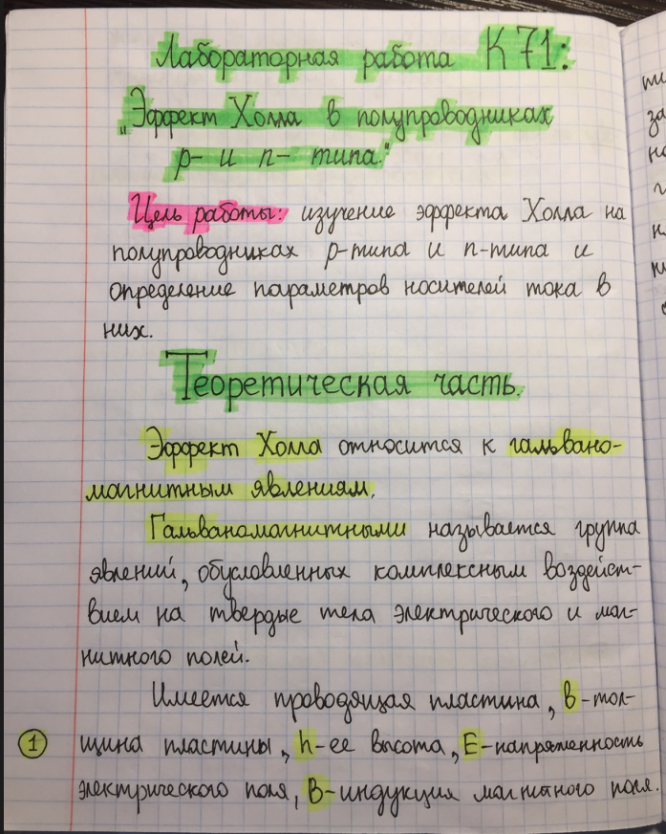 Лабораторная работа К71:
„Эффект Холла в полупроводниках
p- и n- типа."
Цель работы: изучение эффекта Холла на
полупроводниках p-типа и n-типа и
определение параметров носителей тока в
них.
Теоретическая часть.
Эффект Холла относится к гальвано-
магнитным явлениям.
Гальваномагнитными называется группа
явлений, обусловленных комплексным воздейст-
вием на твердые тела электрического и маг-
нитного полей.
Имеется проводящая пластина, b-тол-
1 щина пластины, h-ее высота, E-напряженность
электрического поля, B-индукция магнитного поля.